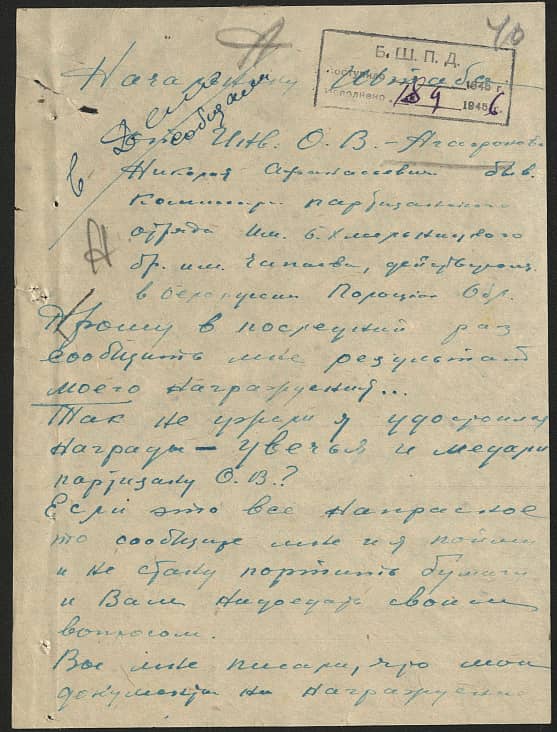 40
Б. Ш. П. Д.
Поступило 1946 г.
Исполнено 18 9 1946 г.
Начальнику Штаба
сообщали
Инв. О. В. - Агафонова
Николая Афанасьевич быв.
Комиссар партизанского
отряда им. Б. Хмельницкого
бр. им. Чапаева, действующ.
в Белоруссии Полоцкой Обл.
Прошу в последний раз
сообщить мне результат
моего награждения...
Так не ужели я удостоился
Награды - увечья и медали
партизану О. В.?
Если это все напрасное
то сообщите мне и я пойму
и не стану портить бумаги
и Вам надоедать своим
вопросом.
Вы мне писали, что мои
документы на награждение